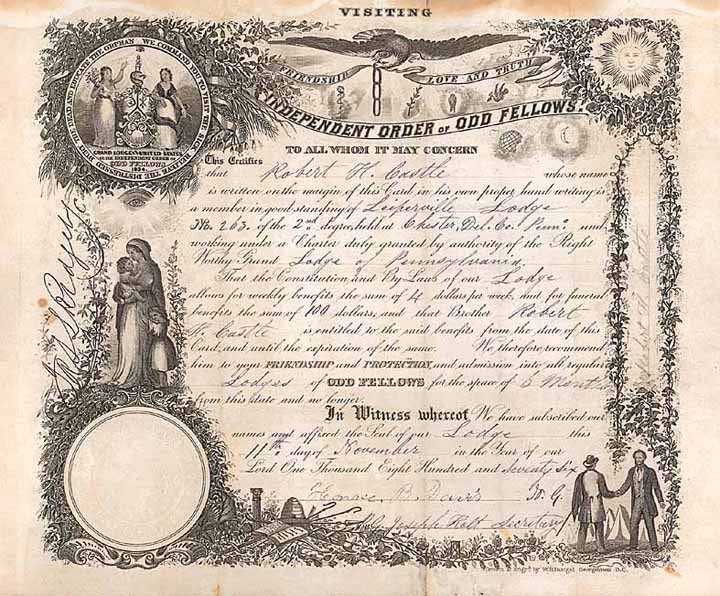 VISITING
WE COMMAND YOU TO VISIT THE SICK RELIEVE THE DISTRESSED BURY THE DEAD AND EDUCATE THE ORPHAN
GRAND LODGE OF THE UNITED STATES
OF THE INDEPENDENT ORDER OF
ODD FELLOWS
1834
FRIENDSHIP LOVE AND TRUTH
INDEPENDENT ORDER OF ODD FELLOWS.
TO ALL WHOM IT MAY CONCERN
This Certifies
that Robert H. Castle whose name
is written on the margin of this Card in his own proper hand writing is
a member in good standing of Leiperville Lodge
No. 263. of the 2nd degree, held at Chester, Del. Co. Penna. and
working under a Charter duly granted by authority of the Right
Worthy Grand Lodge of Pennsylvania.
That the Constitution and By Laws of our Lodge
allows for weekly benefits the sum of 4 dollars per week, and for funeral
benefits the sum of 100 dollars, and that Brother Robert
H. Castle is entitled to the said benefits from the date of this
Card, and until the expiration of the same. We therefore recommend
him to your FRIENDSHIP and PROTECTION, and admission into all regular
Lodges of ODD FELLOWS for the space of 6 Months
from this date and no longer.
In Witness whereof We have subscribed our
names and affixed the Seal of our Lodge this
11th day of November in the Year of our
Lord One Thousand Eight Hundred and seventy six
B. Davis N. G.
Joseph Holt Secretary
Engd. by W. Georgetown D.C.